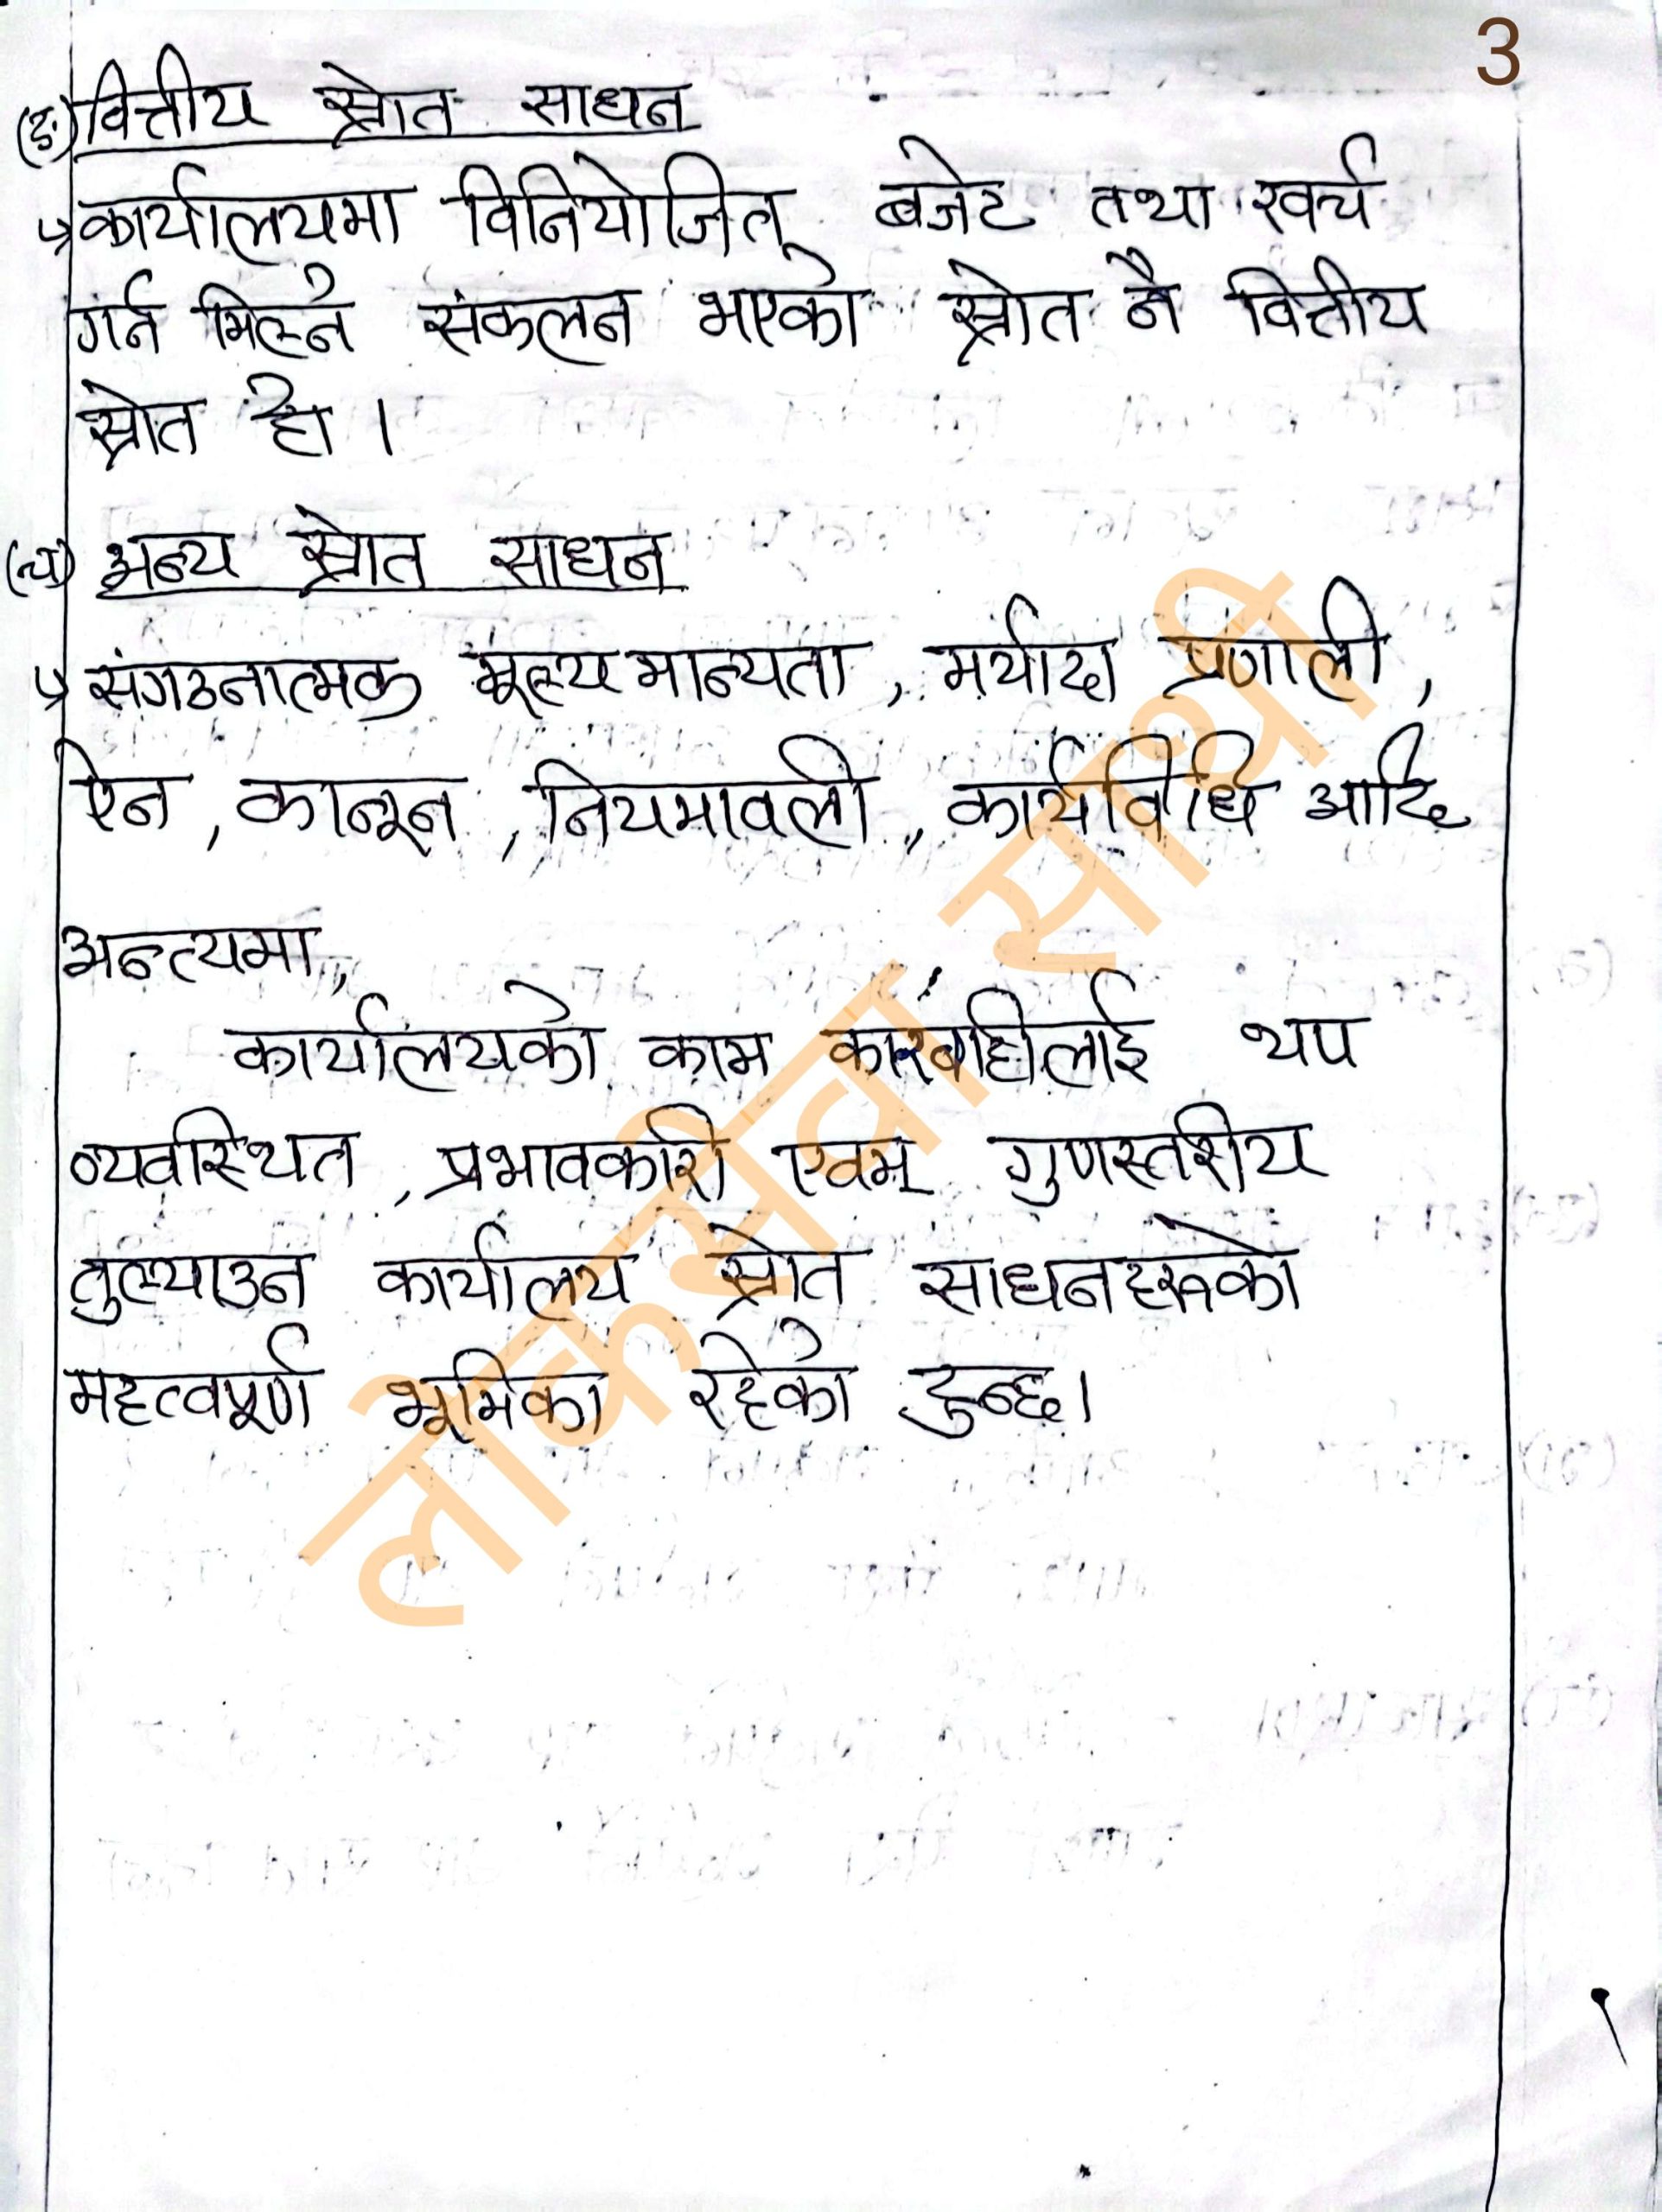 3
(ङ) वित्तीय स्रोत साधन
कार्यालयमा विनियोजित बजेट तथा खर्च
गर्न मिल्ने संकलन भएको स्रोत नै वित्तीय
स्रोत हो ।
(च) अन्य स्रोत साधन
संगठनात्मक मूल्य मान्यता, मर्यादा प्रणाली,
ऐन, कानून, नियमावली, कार्यविधि आदि
अन्त्यमा,
कार्यालयको काम कारवाहीलाई थप
व्यवस्थित, प्रभावकारी एवम् गुणस्तरीय
तुल्याउन कार्यालय स्रोत साधनहरुको
महत्वपूर्ण भूमिका रहेको हुन्छ।
लोकसेवा साथी